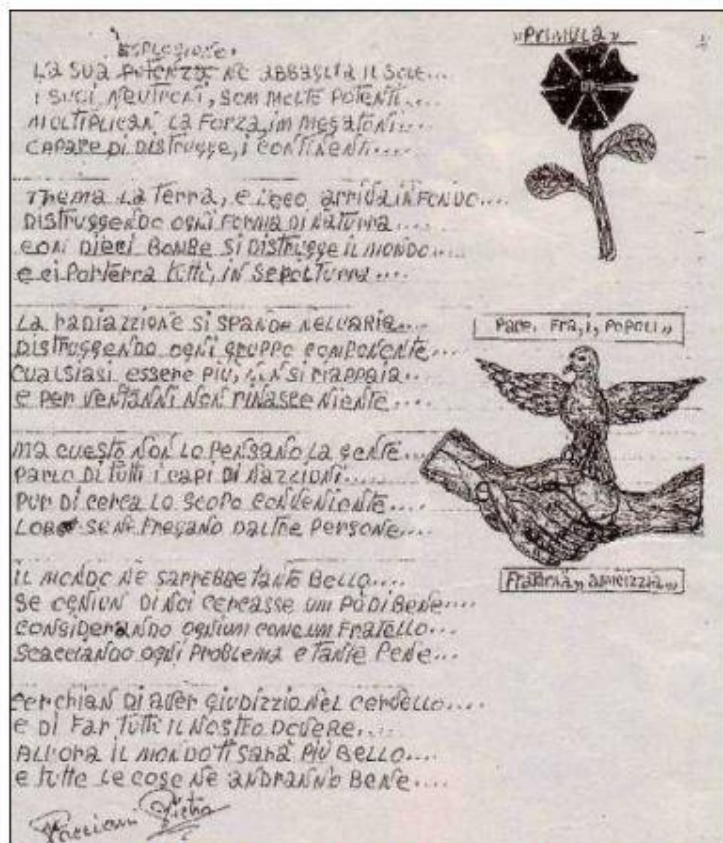 ESPLOSIONE.
LA SUA POTENZA NE ABBAGLIA IL SOLE...
I SUOI NEUTRONI, SOM MOLTE POTENTI....
MOLTIPLICAN LA FORZA, IM MEGATONI...
CAPACE DI DISTRUGGE, I CONTINENTI.....

THEMA LA TERRA, E L'ECO ARRIVA IN FONDO....
DISTRUGGENDO OGNI FORMA DI NATURRA....
CON DIECI BOMBE SI DISTRUGGE IL MONDO...
E CI PORTERRA TUTTI, IN SEPOLTURRA....

LA RADIAZZIONE SI SPANDE NELL'ARIA....
DISTRUGGENDO OGNI GRUPPO COMPONENTE....
CUALSIASI ESSERE PIU, NON SI RIAPPAIA....
E PER VENTANNI NON RINASCE NIENTE....

MA CUESTO NON LO PENSANO LA GENTE...
PARLO DI TUTTI I CAPI DI NAZZIONI....
PUR DI CERCA LO SCOPO CONVENIENTE....
LORO SE NE FREGANO DALTRE PERSONE....

IL MONDO NE SARREBBE TANTE BELLO....
SE OGNIUN DI NOI CERCASSE UM PO DI BENE....
CONSIDERANDO OGNIUM COME UM FRATELLO...
SCACCIANDO OGNI PROBLEMA E TANTE PENE...

CERCHIAN DI AVER GIUDIZZIO NEL CERVELLO....
E DI FAR TUTTI IL NOSTRO DOVERE....
ALLORA IL MONDO TI SARÀ PIÙ BELLO....
E TUTTE LE COSE NE ANDRANNO BENE....
Pacciani Pietro
"PRIMULA"
PACE. FRA, I, POPOLI"
FRATERNA" AMICIZZIA"